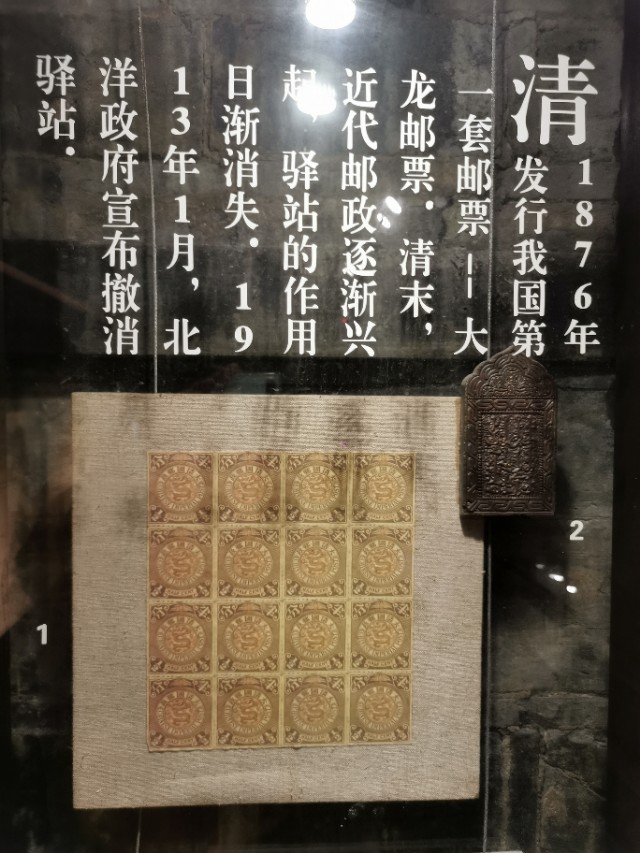 清
1876年
发行我国第
一套邮票——大
龙邮票．清末，
近代邮政逐渐兴
起，驿站的作用
日渐消失．19
13年1月，北
洋政府宣布撤消
驿站．
2
1